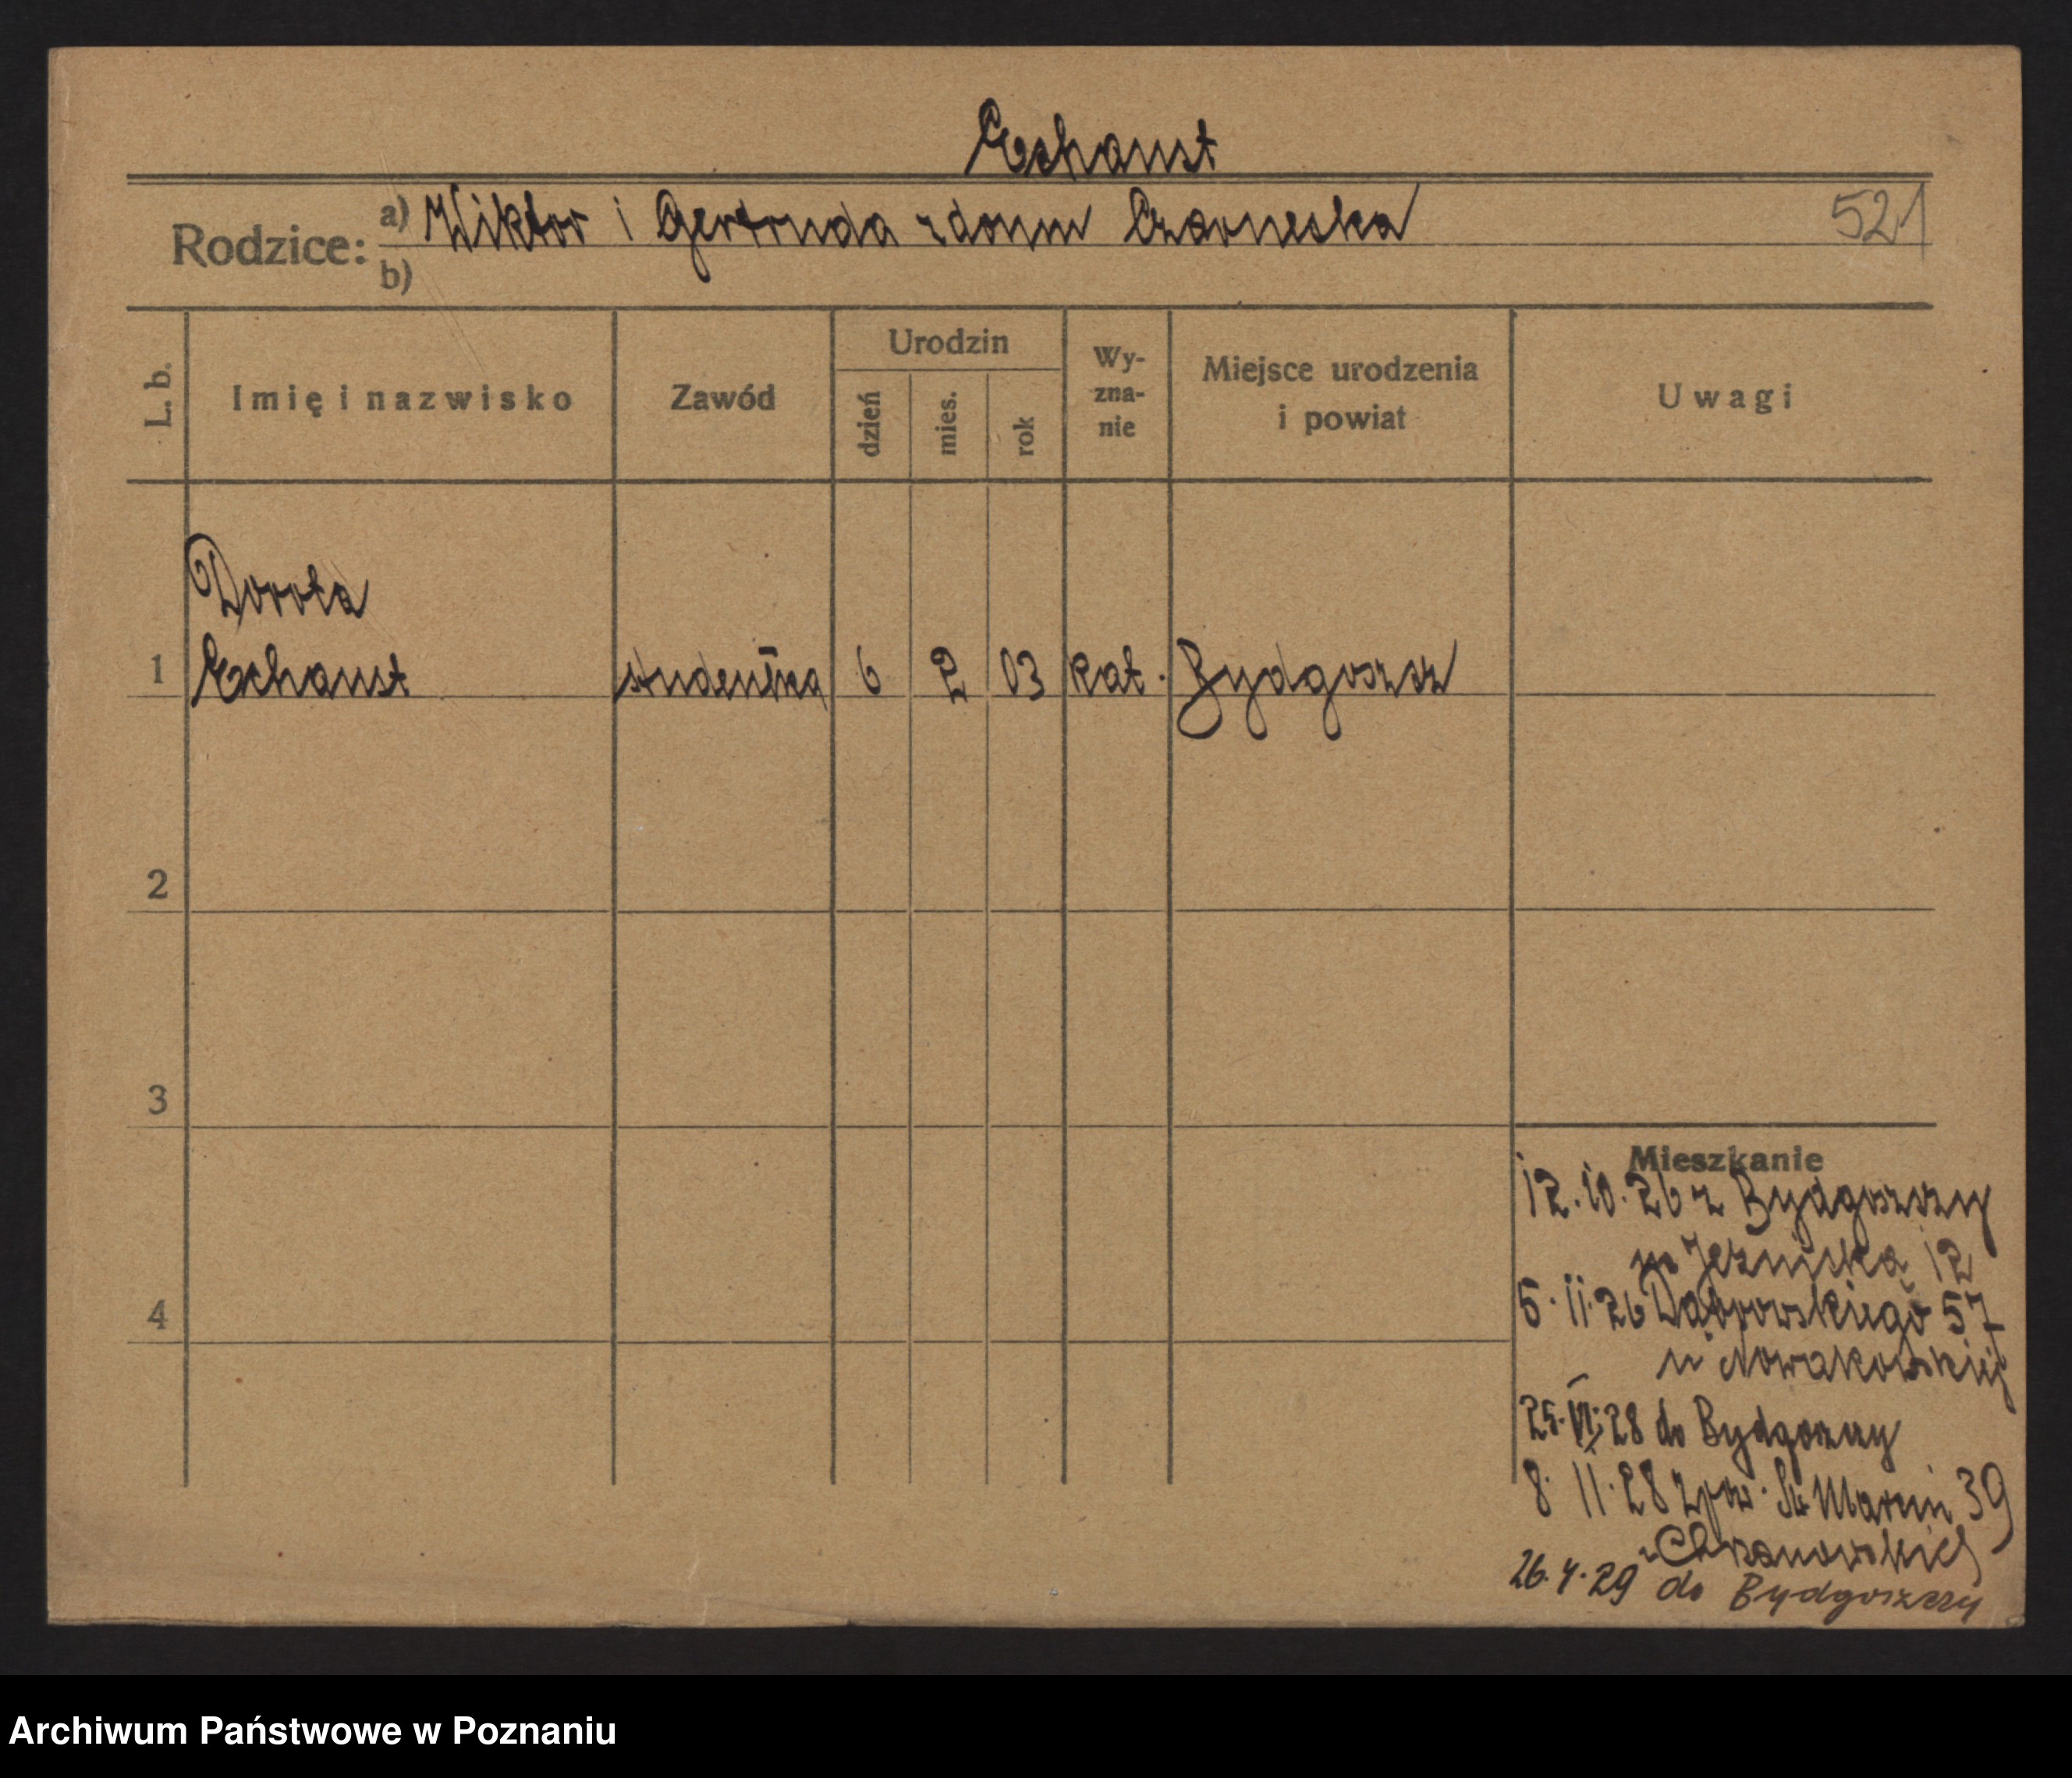 Echaust
Rodzice: a) Wiktor i Gertruda z domu Czarnecka 521
b)
L. b. Imię i nazwisko Zawód Urodzin dzień mies. rok Wy-zna-nie Miejsce urodzenia i powiat Uwagi
Dorota
1 Echaust studentka 6 2 03 kat. Bydgoszcz
2
3
Mieszkanie
12.10.26 z Bydgoszczy
12
4
5.11.26 Dąbrowskiego 57
u Nowakowskiej
25.VI.28 do Bydgoszczy
8.11.28 z pow. Św Marcin 39
u Chrzanowskich
26.4.29 do Bydgoszczy
Archiwum Państwowe w Poznaniu